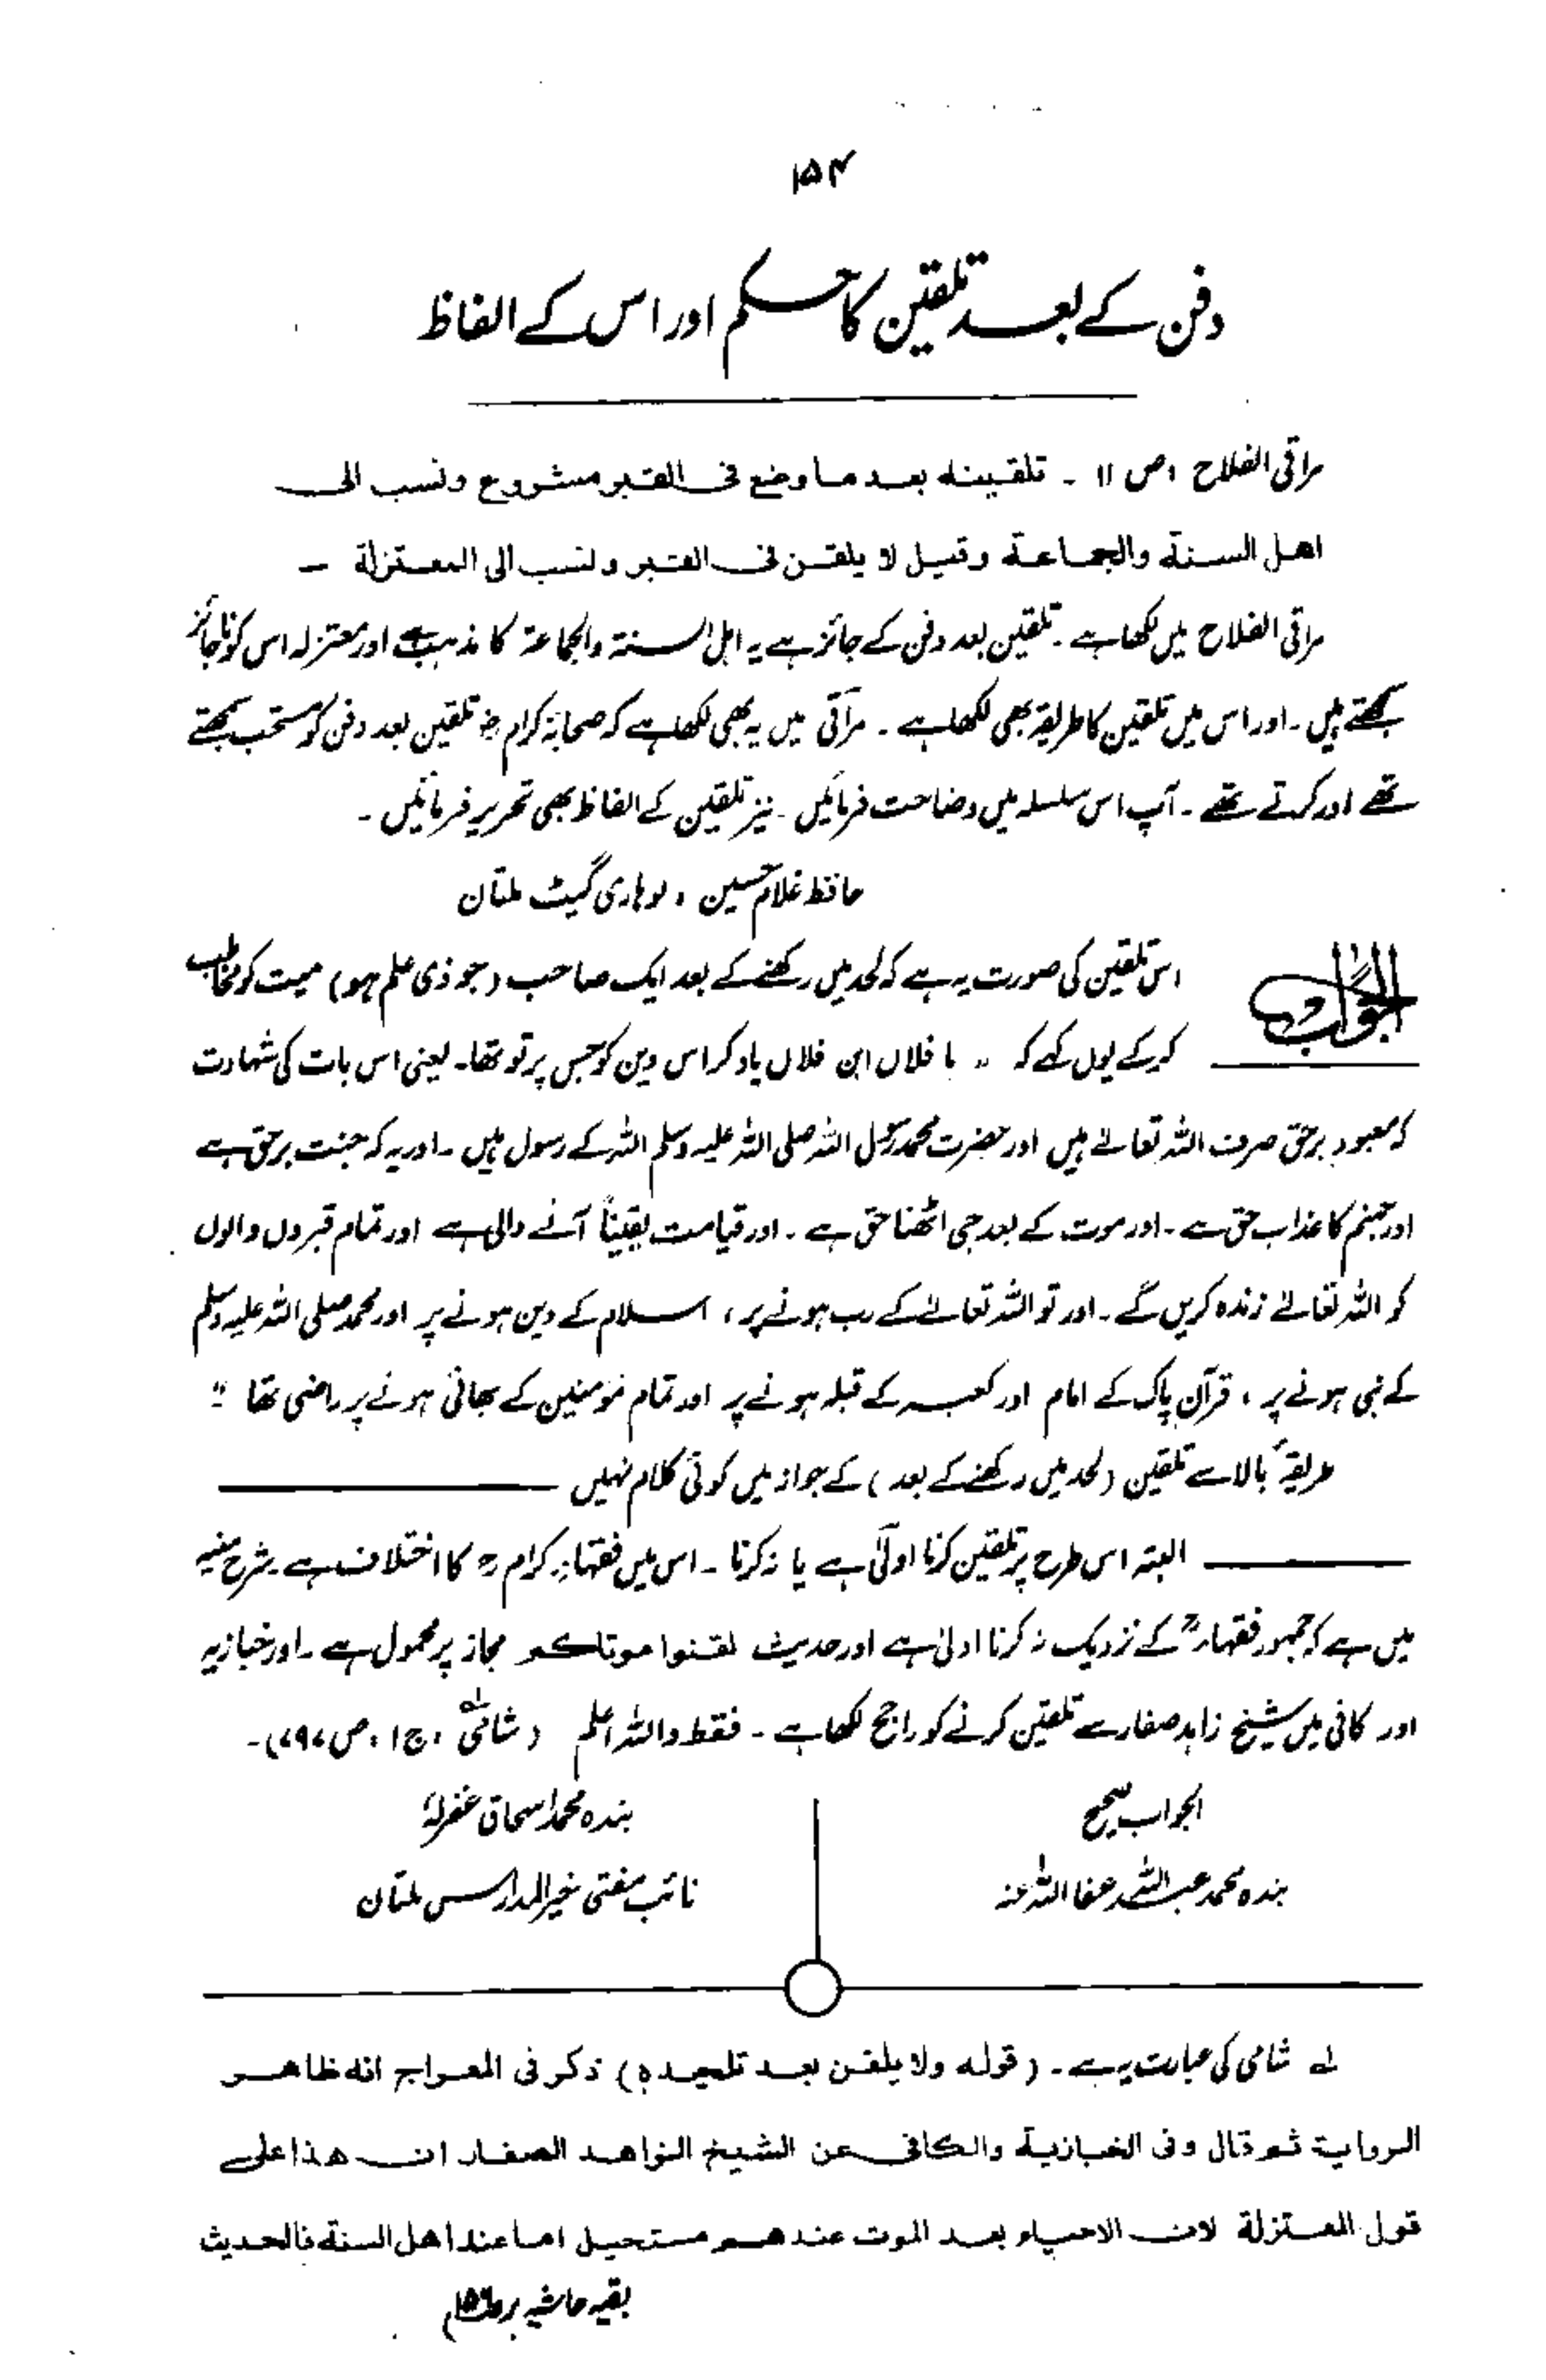 ۱۵۴
دفن کے بعد تلقین کا حکم اور اس کے الفاظ
مراقی الفلاح ، ص ۱۱ ۔ تلقینہ بعد ما وضع فی القبر مشروع ونسب الی
اهل السنة والجماعة وقیل لا یلقن فی القبر ونسب الی المعتزلة ــ
مراقی الفلاح میں لکھا ہے ۔ تلقین بعد دفن کے جائز ہے یہ اہل السنۃ والجماعۃ کا مذہب ہے اور معتزلہ اس کو ناجائز
سمجھتے ہیں ۔ اور اس میں تلقین کا طریقہ بھی لکھا ہے ۔ مراقی میں یہ بھی لکھا ہے کہ صحابۂ کرام رض تلقین بعد دفن کو مستحب سمجھتے
تھے اور کرتے تھے ۔ آپ اس سلسلہ میں وضاحت فرمائیں ۔ نیز تلقین کے الفاظ بھی تحریر فرمائیں ۔
حافظ غلام حسین ، لوہاری گیٹ ملتان
الجواب اس تلقین کی صورت یہ ہے کہ لحد میں رکھنے کے بعد ایک صاحب (جو ذی علم ہو) میت کو مخاطب
کر کے یوں کہے کہ " یا فلاں ابن فلاں یاد کر اس دین کو جس پر تو تھا ۔ یعنی اس بات کی شہادت
کہ معبود برحق صرف اللہ تعالےٰ ہیں اور حضرت محمد رسول اللہ صلی اللہ علیہ وسلم اللہ کے رسول ہیں ۔ اور یہ کہ جنت برحق ہے
اور جہنم کا عذاب حق ہے ۔ اور موت کے بعد جی اٹھنا حق ہے ۔ اور قیامت یقیناً آنے والی ہے اور تمام قبروں والوں
کو اللہ تعالےٰ زندہ کریں گے ۔ اور تو اللہ تعالےٰ کے رب ہونے پر ، اسلام کے دین ہونے پر اور محمد صلی اللہ علیہ وسلم
کے نبی ہونے پر ، قرآن پاک کے امام اور کعبہ کے قبلہ ہونے پر اور تمام مؤمنین کے بھائی ہونے پر راضی تھا "
طریقۂ بالا سے تلقین (لحد میں رکھنے کے بعد) کے جواز میں کوئی کلام نہیں
البتہ اس طرح پر تلقین کرنا اولیٰ ہے یا نہ کرنا ۔ اس میں فقہاءِ کرام رح کا اختلاف ہے ۔ شرح منیہ
میں ہے کہ جمہور فقہاء رح کے نزدیک نہ کرنا اولیٰ ہے اور حدیث لقنوا موتاکم مجاز پر محمول ہے ۔ اور خبازیہ
اور کافی میں شیخ زاہد صفار سے تلقین کرنے کو راجح لکھا ہے ۔ فقط واللہ اعلم (شامی لہ ، ج۱ ، ص ۷۹۷) ۔
الجواب صحیح
بندہ محمد عبد اللہ عفا اللہ عنہ
بندہ محمد اسحاق غفرلہٗ
نائب مفتی خیر المدارس ملتان
لہ شامی کی عبارت یہ ہے ۔ (قولہ ولا یلقن بعد تلحیدہ) ذکر فی المعراج انه ظاهر
الروایة ثم قال وفی الخبازیة والکافی عن الشیخ الزاهد الصفار ان هذا علی
قول المعتزلة لان الاحیاء بعد الموت عندهم مستحیل اما عند اهل السنة فالحدیث
بقیہ حاشیہ بر